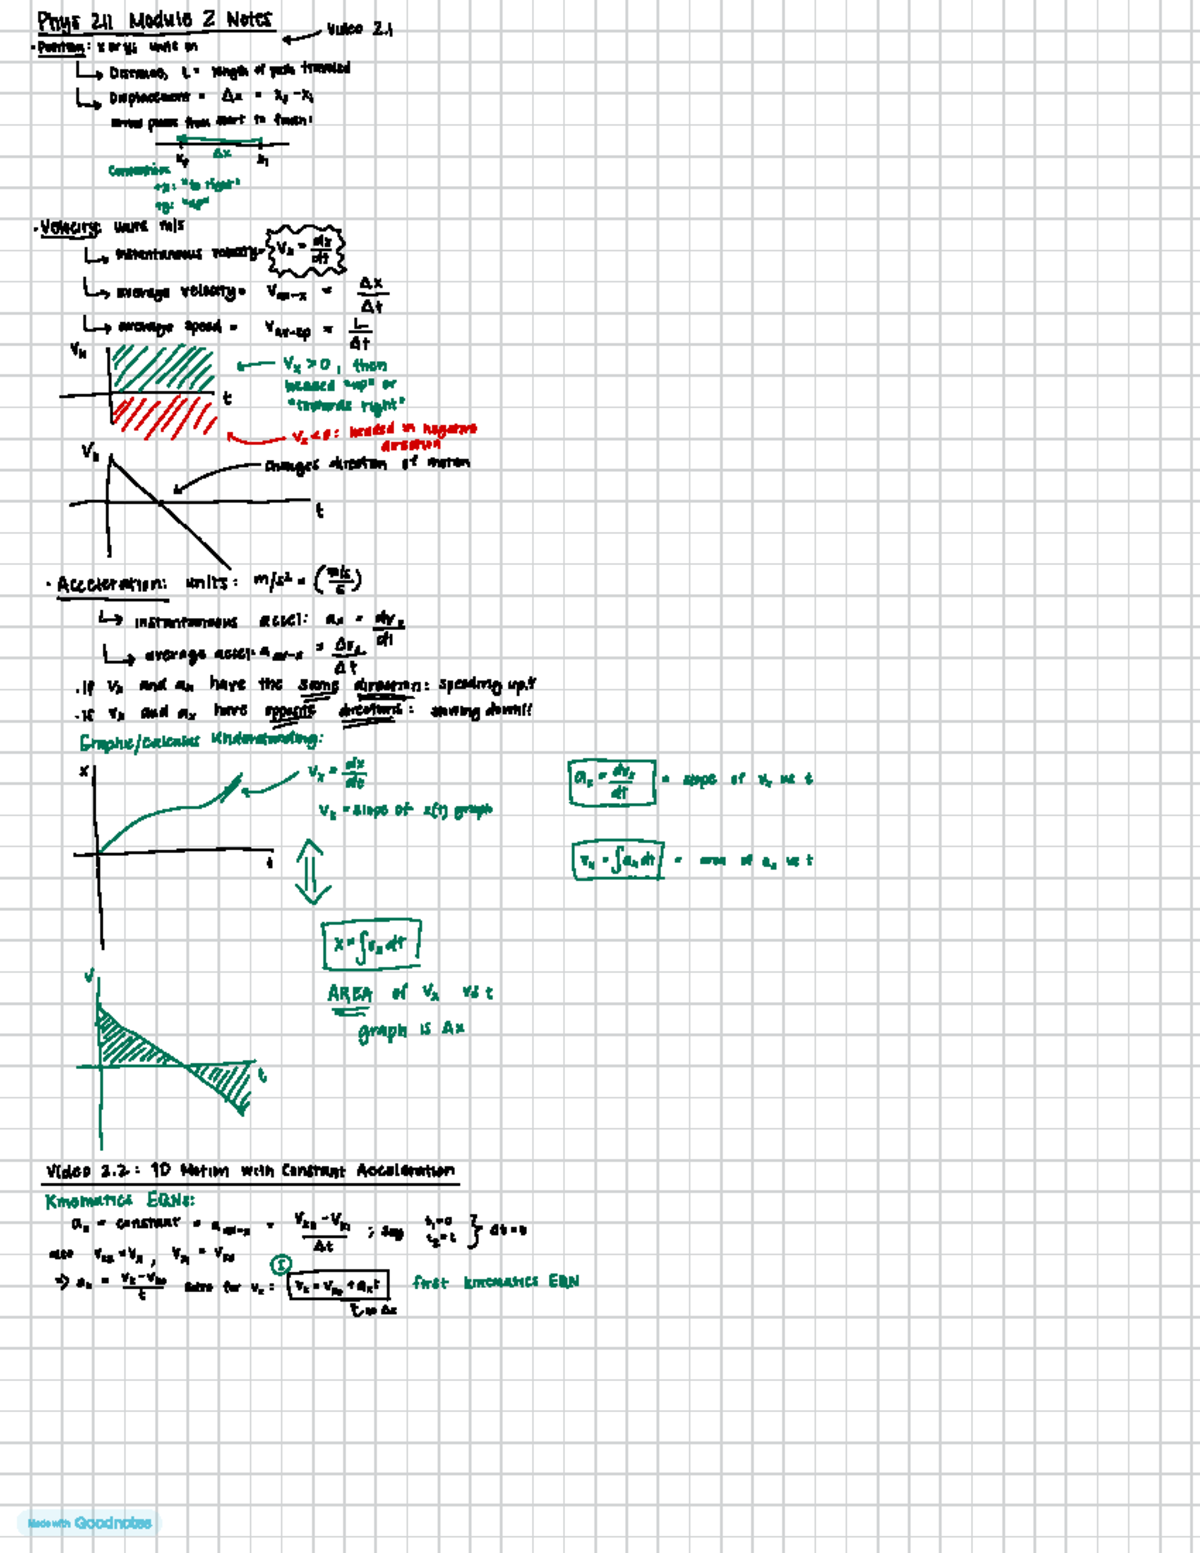 Phys 211 Module 2 Notes
Video 2.1
· Position: x or y; units m
Distance, L = length of path traveled
Displacement = Δx = x₂ - x₁
arrow points from start to finish!
x₂ Δx x₁
Convention:
+x: "to right"
+y: "up"
· Velocity: units m/s
instantaneous velocity = Vx = dx/dt
average velocity = Vav-x = Δx/Δt
average speed = Vav-sp = L/Δt
Vx
t
Vx > 0, then
headed "up" or
"towards right"
Vx < 0: headed in negative
direction
Vx
changes direction of motion
t
· Acceleration: units: m/s² = (m/s/s)
instantaneous accel: ax = dvx/dt
average accel: aav-x = Δvx/Δt
· If Vx and ax have the same direction: speeding up!!
· If Vx and ax have opposite directions: slowing down!!
Graphic/calculus Understanding:
x
t
Vx = dx/dt
Vx = slope of x(t) graph
ax = dvx/dt = slope of Vx vs t
vx = ∫ax dt = area of ax vs t
x = ∫vx dt
AREA of Vx vs t
graph is Δx
V
t
Video 2.2: 1D Motion with Constant Acceleration
Kinematics EQNs:
ax = constant = aav-x = Vx₂ - Vx₁/Δt ; say t₁=0 t₂=t } Δt = t
also Vx₂ = Vx, Vx₁ = Vx₀
⇒ ax = Vx - Vx₀/t solve for vx: ① Vx = Vx₀ + axt first kinematics EQN